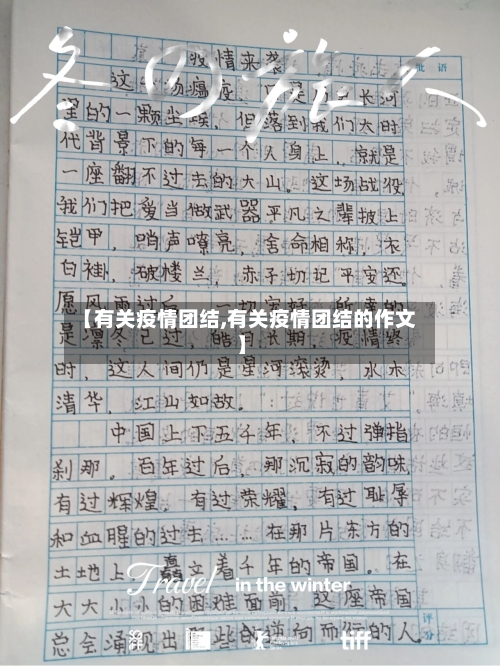 冬日旅人
疫情来袭
批 语
这 场瘟疫, 长河
里的一颗尘埃,但落到我们大时
代背景下的每一个人身上,就是
一座翻不过去的大山。这场战役
我们把爱当做武器平凡之辈披上
铠甲,哨声嘹亮,舍命相称,衣
白褂,破楼兰,赤子切记平安还。
愿风雨过后,一切安好,所
【有关疫情团结,有关疫情团结的作文
】
是凛冬已过,皓 长期,疫情终
时,这人间仍是星河滚烫,水木
清华,江山如故。
中国上下五千年,不过弹指
刹那。百年过后,那沉寂的韵味
有过辉煌,有过荣耀,有过耻辱
和血腥的过往……在那片东方的
土地上, 着千年的帝国。在
Travel in the winter
大大小小的困难面前,这座帝国
评分
总会涌现出那些 逆向而行的人。
tiff